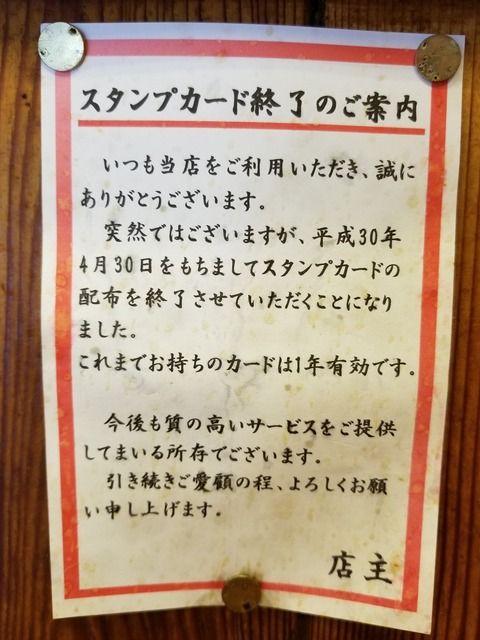 スタンプカード終了のご案内
いつも当店をご利用いただき、誠に
ありがとうございます。
突然ではございますが、平成30年
4月30日をもちましてスタンプカードの
配布を終了させていただくことになり
ました。
これまでお持ちのカードは1年有効です。
今後も質の高いサービスをご提供
してまいる所存でございます。
引き続きご愛顧の程、よろしくお願
い申し上げます。
店主